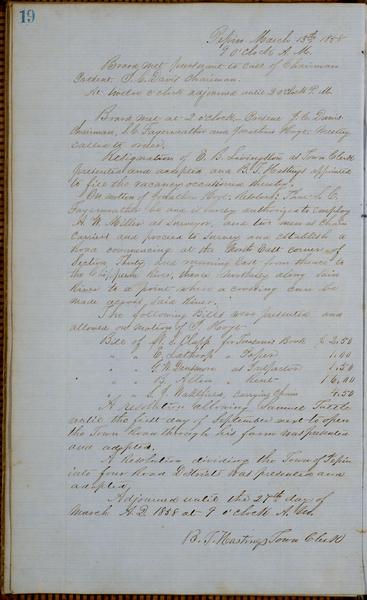 19
Pepin March 13th 1858
9 O'Clock A.M.
Board met pursuant to call of Chairman
Present J. C. Davis Chairman.
At twelve o'clock adjourned until 2 o'clock P.M.
Board met at 2 o'clock Present J. C. Davis
Chairman, S. C. Fayerweather and Jonathan Hoyt. Meeting
called to order.
Resignation of E. B. Livingston as Town Clerk
presented and adopted and B. T. Hastings appointed
to fill the vacancy occasioned thereby.
On motion of Jonathan Hoyt, Resolved, That S. C.
Fayerweather be and is hereby authorized to employ
H. W. Miller as Surveyor, and two men as Chain
Carriers and proceed to Survey and establish a
Road commencing at the North East corner of
Section Thirty and running East from thence to
the Chippewa River, thence Southerly along Said
River to a point where a crossing can be
made across Said River.
The following Bills were presented and
allowed on motion of J. Hoyt.
Bill of Clapp for Treasurers Book $ 2.50
" " E. Lathrop " Paper 1.00
" " Densmore as Inspector 1.50
" " B. Allen " Rent 16.00
" " Wakefield, carrying chain 4.50
A resolution allowing Samuel Tuttle
until the first day of September next to open
the Town Road through his farm was presented
and adopted.
A Resolution dividing the Town of Pepin
into four Road Districts was presented and
adopted,
Adjourned until the 27th day of
March A.D. 1858 at 9 o'clock A.M.
B. T. Hastings Town Clerk